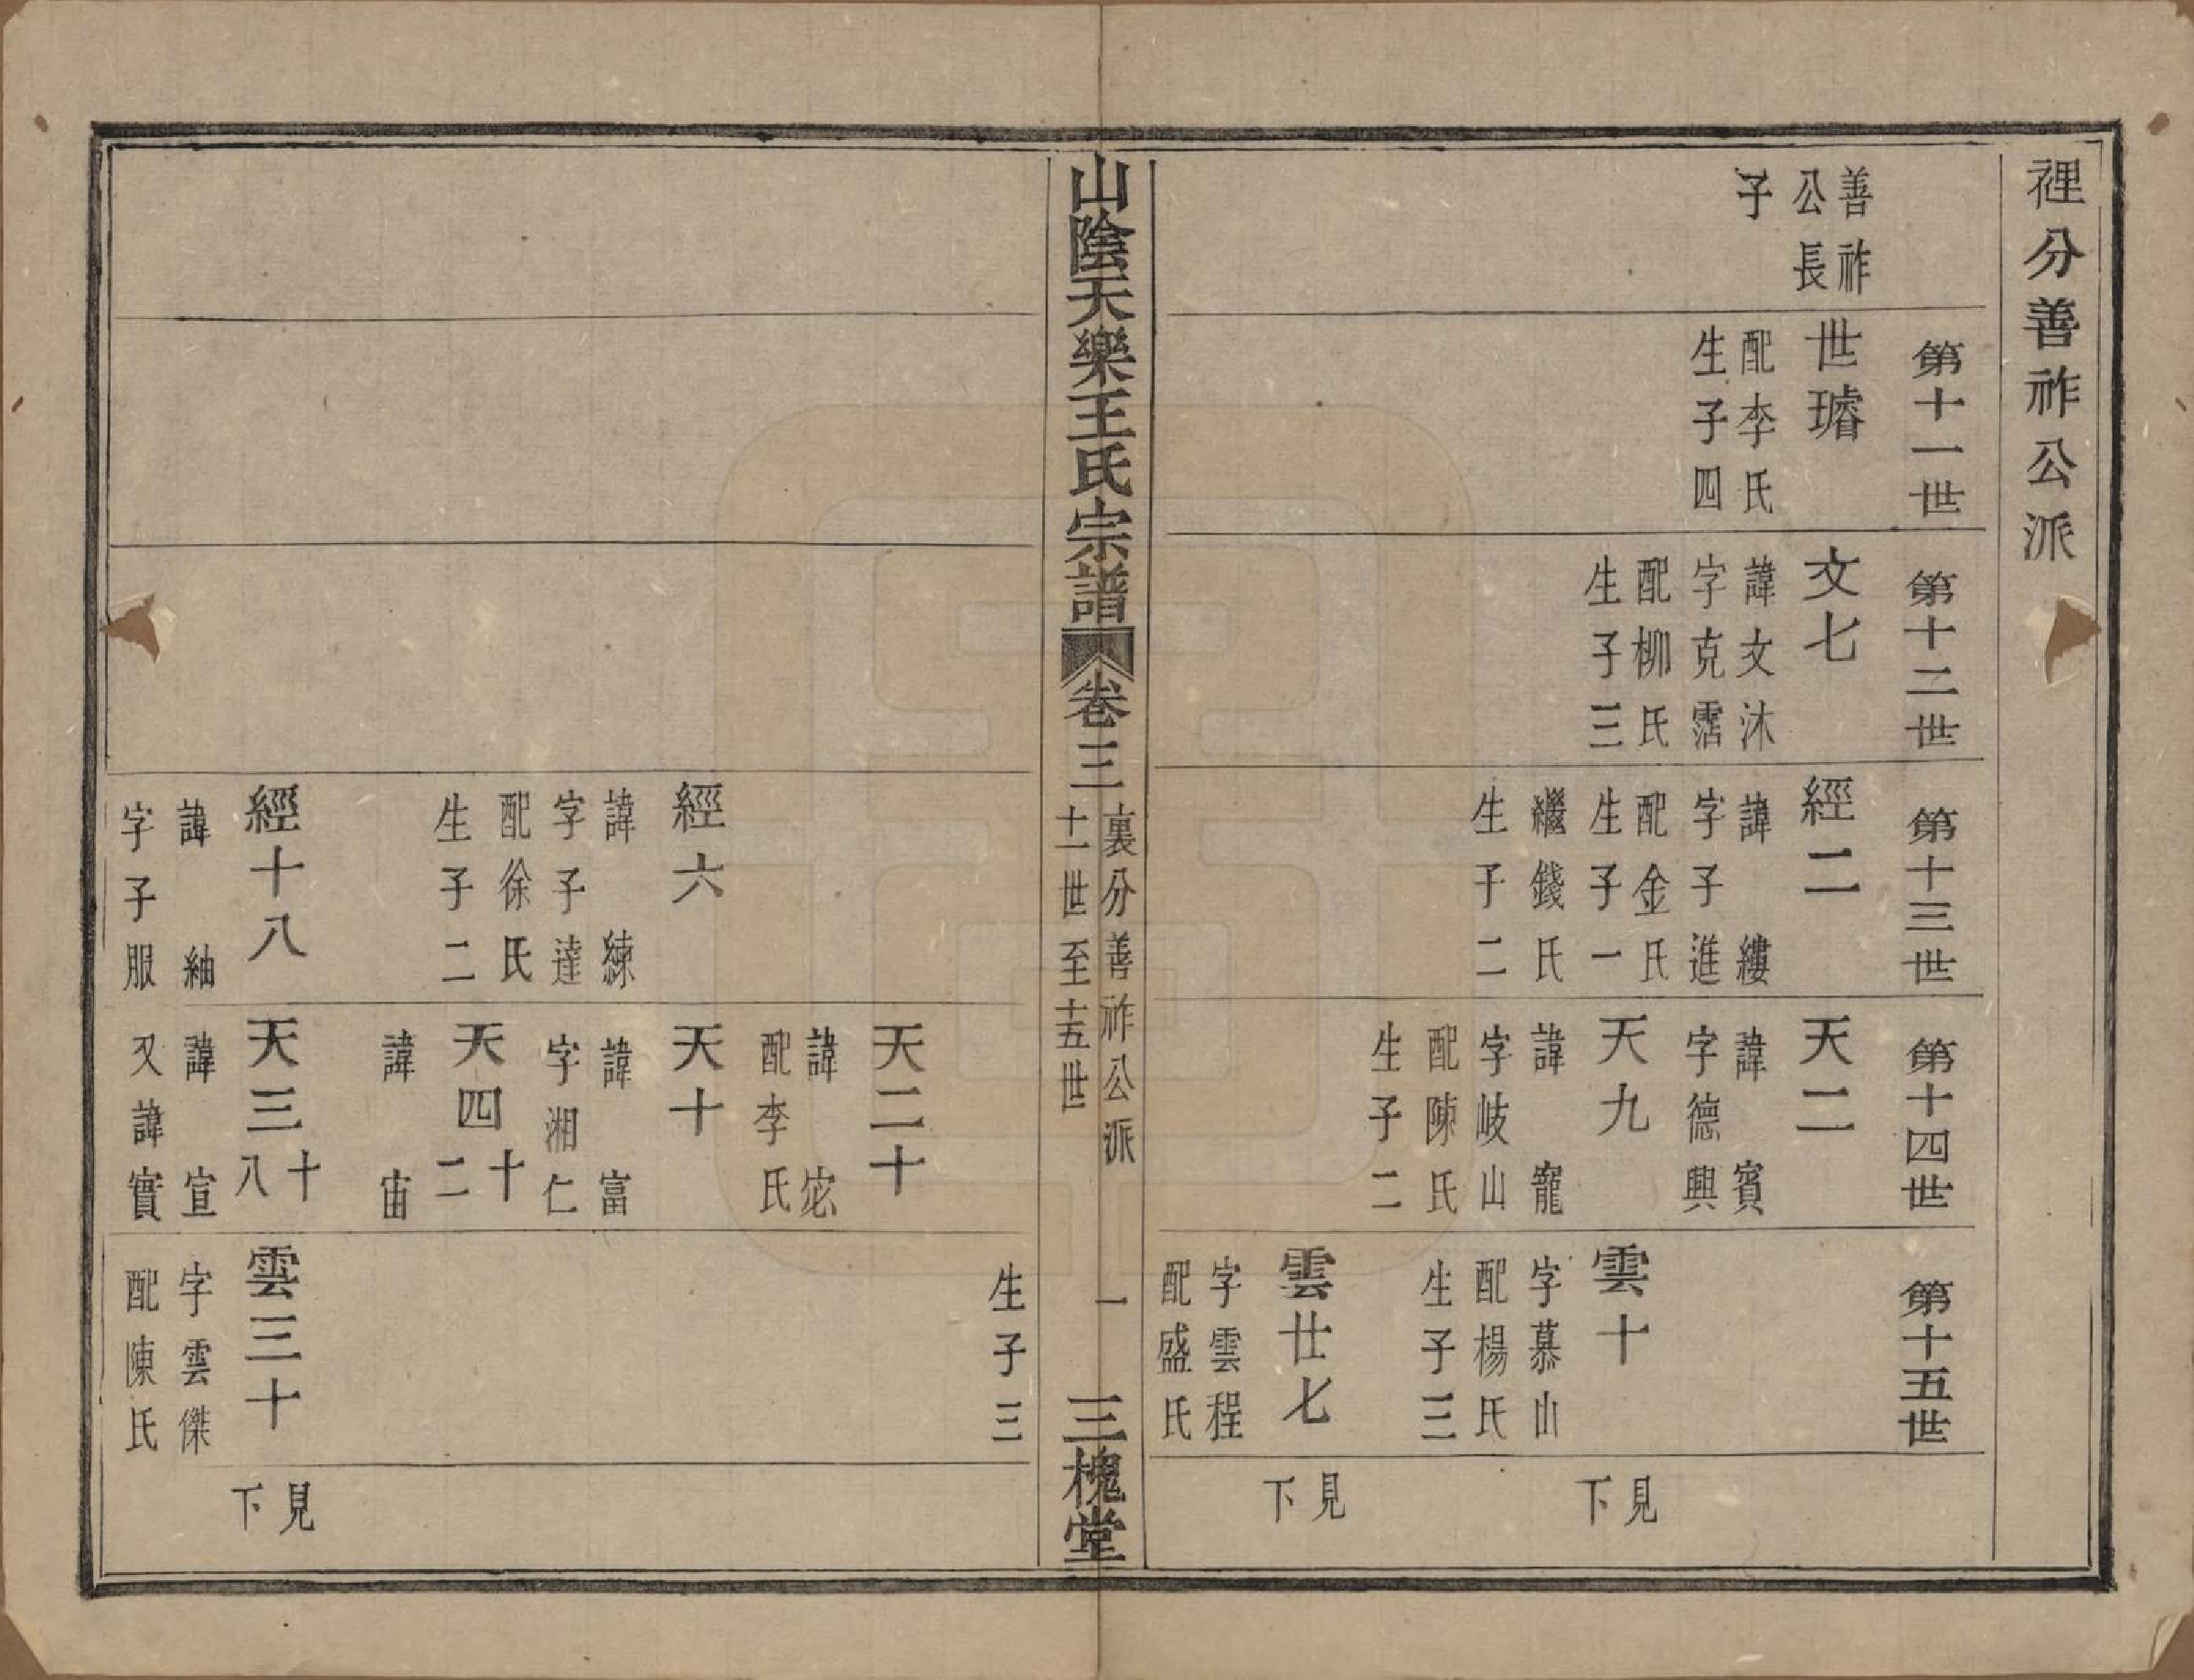 裡分善祚公派
善祚
公長
子
第十一世
世璿
配李氏
生子四
第十二世
文七
諱文沐
字克霑
配柳氏
生子三
第十三世
經二
諱縷
字子進
配金氏
生子一
繼錢氏
生子二
第十四世
天二
諱賓
字德興
天九
諱寵
字岐山
配陳氏
生子二
第十五世
雲十
字慕山
配楊氏
生子三
雲廿七
字雲程
配盛氏
見
下
見
下
山陰天樂王氏宗譜
卷三
裏分善祚公派
十一世至十五世
一
三槐堂
經六
諱練
字子達
配徐氏
生子二
經十八
諱紬
字子服
天二十
諱宓
配李氏
天十
諱富
字湘仁
天四十
二
諱宙
天三十
八
諱宣
又諱實
生子三
雲三十
字雲傑
配陳氏
見
下